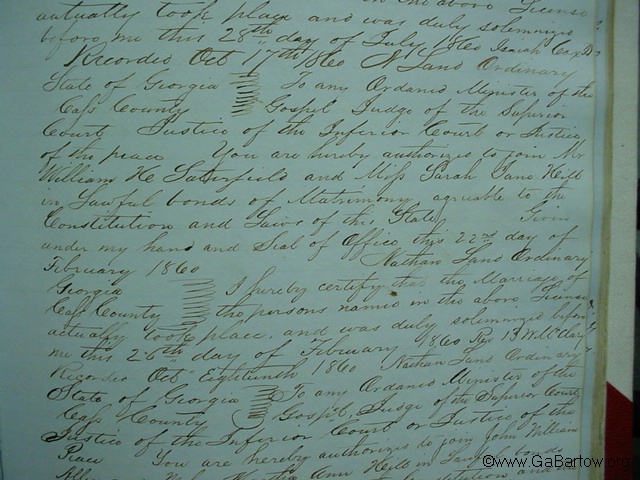 in the above License
actually took place and was duly solemnized
before me this 28th day of July 1860 Isaiah
Recorded Oct 17th 1860 N Land Ordinary
State of Georgia To any Ordained Minister of the
Cass County Gospel Judge of the Superior
Court Justice of the Inferior Court or Justice
of the peace You are hereby authorized to join Mr
William H Satterfield and Miss Sarah Jane Hill
in Lawful bonds of Matrimony agreable to the
Constitution and Laws of this State Given
under my hand and Seal of Office this 22nd day of
February 1860 Nathan Land Ordinary
Georgia I hereby certify that the Marriage of
Cass County the persons named in the above License
actually took place and was duly solemnized before
me this 26th day of February 1860 Rev
Recorded Oct Eighteenth 1860 Nathan Land Ordinary
State of Georgia To any Ordaned Minister of the
Cass County Gospel, Judge of the Superior Court
Justice of the Inferior Court or Justice of the
Peace You are hereby authorized to join John William
Ann Hill in Lawful bonds
Constitution and
©www.GaBartow.org